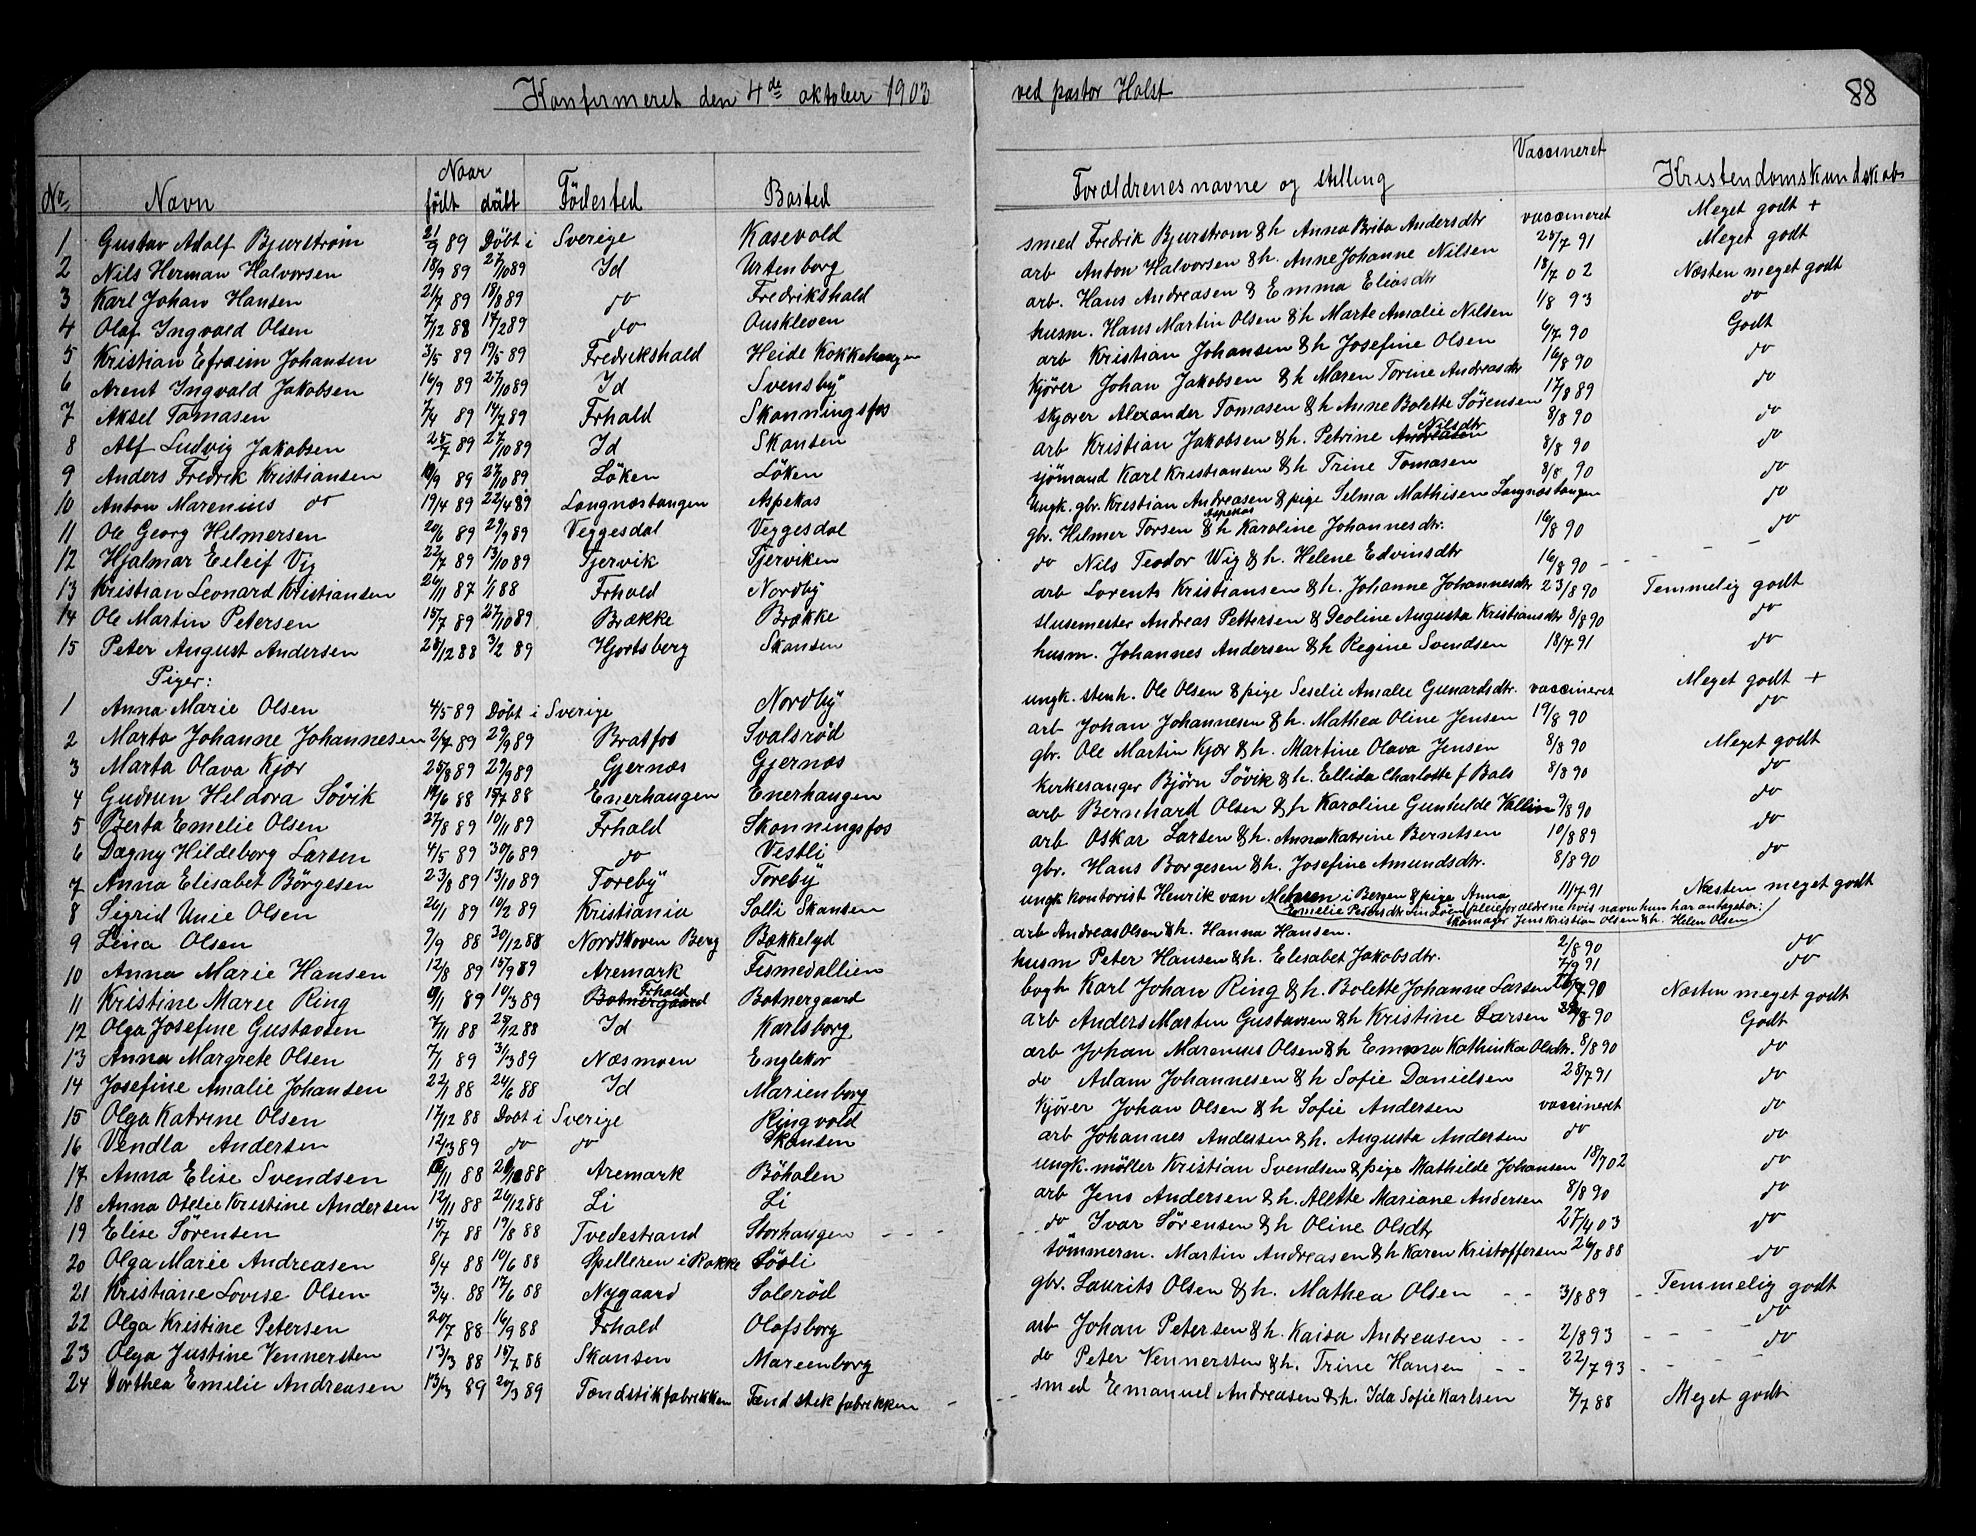 Konfirmeret den 4de oktober 1903 ved pastor Holst 88
Nr. Navn Naar födt döbt Födested Bosted Forældrenes navne og stilling Vaccineret Kristendomskundskab
1 Gustav Adolf Bjurström 21/9 89 Döbt i Sverige Kasevold smed Fredrik Bjurstrom & h Anna Brita Andersdtr vaccineret Meget godt +
2 Nils Herman Halvorsen 18/9 89 27/10 89 Id Urtenborg arb Anton Halvorsen & h. Anne Johanne Nilsen 28/7 91 Meget godt
3 Karl Johan Hansen 21/7 89 18/8 89 do Fredrikshald arb. Hans Andreasen & Emma Eliasdtr 18/7 02 Næsten meget godt
4 Olaf Ingvald Olsen 7/12 88 17/2 89 do Ouskleven husm. Hans Martin Olsen & h Marte Amalie Nilsen 1/8 93 do
5 Kristian Efraim Johansen 3/5 89 19/5 89 Fredrikshald Heide Kokkehaugen arb Kristian Johansen & h Josefine Olsen 6/7 90 Godt
6 Arent Ingvald Jakobsen 16/9 89 27/10 89 Id Svensby kjörer Johan Jakobsen & h Maren Torine Andreasdtr 16/8 90 do
7 Aksel Tomasen 7/4 89 14/7 89 Frhald Skonningsfos skjærer Alexander Tomasen & h Anne Bolette Sörensen 17/8 89 do
8 Alf Ludvig Jakobsen 25/7 89 27/10 89 Id Skansen arb Kristian Jakobsen & h. Petrine Andreasen Nilsdtr 8/8 90 do
9 Anders Fredrik Kristiansen 10/9 89 27/10 89 Löken Löken sjömand Karl Kristiansen & h Trine Tomasen 8/8 90 do
10 Anton Marenius do 19/4 89 22/4 89 Langnæstangen Aspekas Ungk. gbr. Kristian Andreasen & pige Selma Mathisen Langnæstangen Aspekas 8/8 90 do
11 Ole Georg Hilmersen 20/6 89 29/9 89 Veggesdal Veggesdal gbr. Hilmer Torsen & h Karoline Johannesdtr. 16/8 90 do
12 Hjalmar Eileif Vig 22/7 89 13/10 89 Tjervik Tjerviken do Nils Teodor Wig & h. Helene Edvinsdtr 16/8 90 - - - - do
13 Kristian Leonard Kristiansen 26/11 87 1/1 88 Frhald Nordby arb Lorents Kristiansen & h. Johanne Johannesdtr 23/8 90 Temmelig godt
14 Ole Martin Petersen 15/7 89 27/10 89 Brække Brække slusemester Andreas Pettersen & Geoline Augusta Kristiansdtr 8/8 90 do
15 Peter August Andersen 28/12 88 3/2 89 Hjortsberg Skansen husm. Johannes Andersen & h Regine Svendsen 18/7 91 do
Piger:
1 Anna Marie Olsen 4/5 89 Döbt i Sverige Nordby ungk. stenh. Ole Olsen & pige Seselie Amalie Gunardsdtr. vaccineret Meget godt +
2 Marta Johanne Johannesen 2/7 89 29/9 89 Bratfos Svalsröd arb Johan Johannesen & h. Mathea Oline Jensen 19/8 90 do
3 Marta Olava Kjær 25/8 89 29/9 89 Gjernæs Gjernæs gbr. Ole Martin Kjær & h. Martine Olava Jensen 8/8 90 Meget godt
4 Gudrun Hildora Sövik 19/6 88 15/7 88 Enerhaugen Enerhaugen Kirkesanger Björn Sövik & h. Ellida Charlotte f Bals 8/8 90 do
5 Berta Emelie Olsen 27/8 89 10/11 89 Frhald Skonningsfos arb Bernhard Olsen & h Karoline Gunhilde Vallin 9/8 90 do
6 Dagny Hildeborg Larsen 4/5 89 30/6 89 do Vestli arb Oskar Larsen & h. Anna Katrine Berntsen 10/8 89 do
7 Anna Elisabet Börgesen 23/8 89 13/10 89 Toreby Toreby gbr. Hans Borgesen & h. Josefine Amundsdtr. 8/8 90 do
8 Sigrid Unie Olsen 26/1 89 10/2 89 Kristiania Solli Skansen ungk kontorist Henrik van in Bergen & pige Anna 11/7 91 Næsten meget godt
Emelie Petersdtr (pleieforældrene hvis navn hun har antaget er: skomager Jens Kristian Olsen & h. Helen Olsen)
9 Lina Olsen 9/9 88 30/12 88 Nordskoven Berg Bækkelyd arb Andreas Olsen & h. Hanna Hansen. 2/8 90 do
10 Anna Marie Hansen 12/8 89 15/9 89 Aremark Fismedallien husm Peter Hansen & h. Elesabet Jakobsdtr. 7/9 91 do
11 Kristine Marie Ring 10/1 89 10/3 89 Botnergaard Frhald Botnergaard bagh Karl Johan Ring & h. Bolette Johanne Larsen /7 90 Næsten meget godt
12 Olga Josefine Gustavsen 7/11 88 25/12 88 Id Karlsborg arb Anders Martin Gustavsen & h Kristine Larsen /8 90 Godt
13 Anna Margrete Olsen 7/1 89 31/3 89 Næsmoen Englekor arb Johan Marenius Olsen & h Emma Kathinka Olsdtr. 8/8 90 do
14 Josefine Amalie Johansen 22/1 88 24/6 88 Id Marienborg do Adam Johannesen & h Sofie Danielsen 28/7 91 do
15 Olga Katrine Olsen 17/12 88 Döbt i Sverige Ringvold Kjörer Johan Olsen & h Sofie Andersen vaccineret do
16 Vendla Andersen 12/3 89 do do Skansen arb Johannes Andersen & h. Augusta Andersen do do
17 Anna Elise Svendsen /11 88 26/12 88 Aremark Böhalen ungk. möller Kristian Svendsen & pige Mathilde Johansen 18/7 02 do
18 Anna Otelie Kristine Andersen 12/11 88 26/12 88 Li Li arb Jens Andersen & h. Alette Mariane Andersen 8/8 90 do
19 Elise Sörensen 15/7 88 19/8 88 Tvedestrand Storhaugen - - - - do Ivar Sörensen & h Oline Olsdtr 27/4 03 do
20 Olga Marie Andreasen 8/4 88 10/6 88 Spilleren i Rakke Lööli tömmerm. Martin Andreasen & h Karen Kristoffersen 26/8 88 do
21 Kristiane Lovise Olsen 3/4. 88 17/6 88 Nygaard Soleröd gbr. Laurits Olsen & h. Mathea Olsen - - 3/8 89 - Temmelig godt
22 Olga Kristine Petersen 20/7 88 16/9 88 Frhald Olafsborg arb Johan Petersen & h. Kaisa Andreasen - - 2/8 93 - - - - do
23 Olga Justine Vennersten 13/3 88 15/7 88 Skansen Mareenborg do Peter Vennersten & h. Trine Hansen - - 22/7 93 - - - - do
24 Dorthea Emilie Andreasen 13/3 89 20/3 89 Tændstikfabrikken Tændstikfabrikken - - - smed Emanuel Andreasen & h. Ida Sofie Karlsen 7/7 88 Meget godt